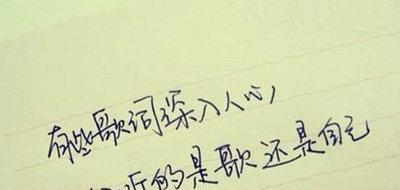 有些歌词深入人心
的是歌还是自己